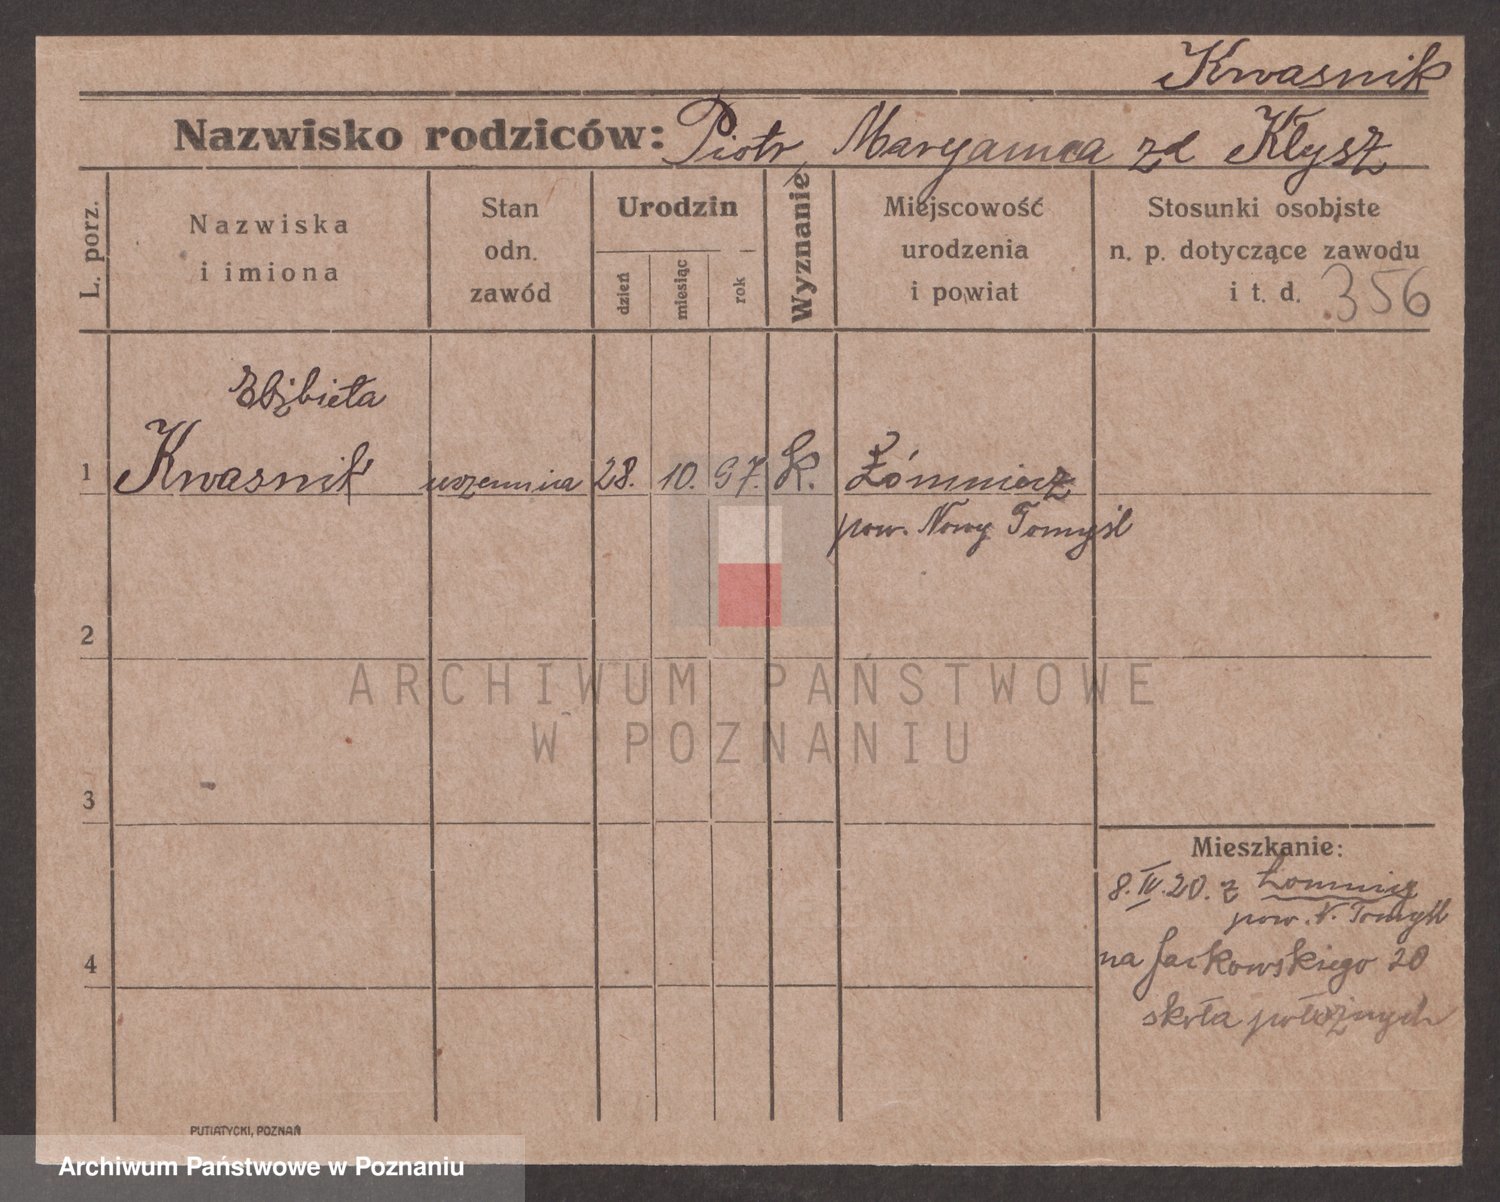 Kwasnik
Nazwisko rodziców: Piotr, Maryanna zd Kłysz
L. porz.
Nazwiska
i imiona
Stan
odn.
zawód
Urodzin
dzień
miesiąc
rok
Wyznanie
Miejscowość
urodzenia
i powiat
Stosunki osobiste
n. p. dotyczące zawodu
i t. d. 356
Elżbieta
1 Kwasnik uczennica 28. 10. 97. k.
pow. Nowy Tomyśl
2
ARCHIWUM PAŃSTWOWE
W POZNANIU
3
Mieszkanie:
8.IV.20. z Łomnicy
pow. N. Tomyśl
4
na Jackowskiego 20
skoła położnych
PUTIATYCKI, POZNAŃ
Archiwum Państwowe w Poznaniu